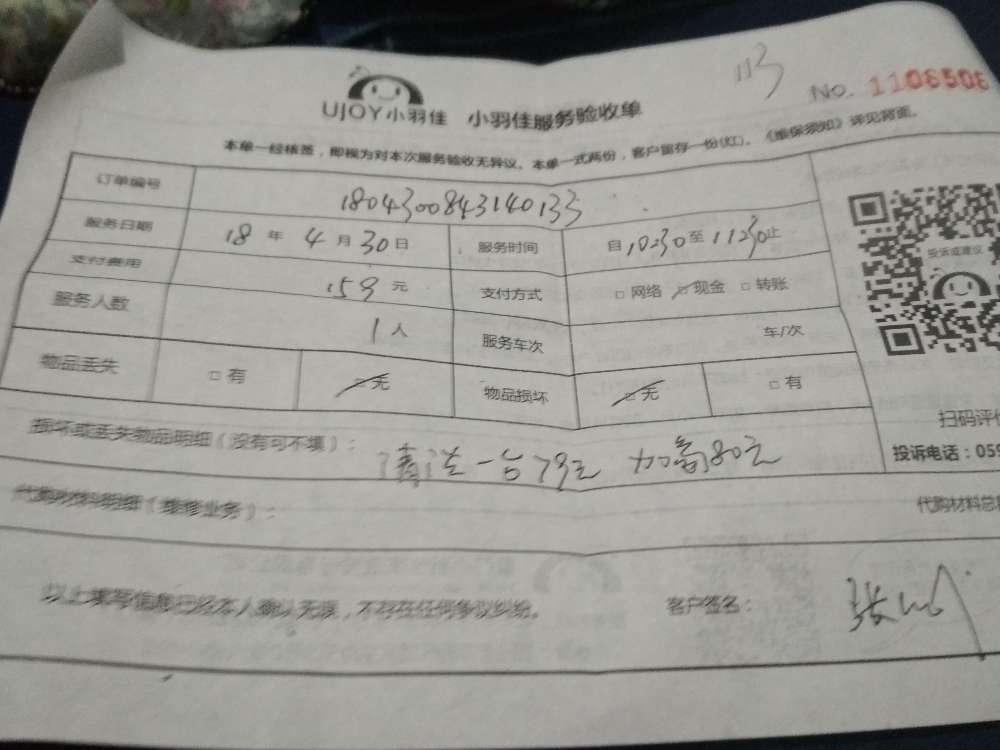 113
No. 1106506
UJOY小羽佳 小羽佳服务验收单
本单一经核签，即视为对本次服务验收无异议。本单一式两份，客户留存一份(红)。《维保须知》详见背面。
订单编号 180430084314013 3
服务日期 18 年 4 月 30 日 服务时间 自 10:30 至 11:30 止
支付费用 159 元 支付方式 □ 网络 □ 现金 □ 转账
服务人数 1 人 服务车次 车/次
物品丢失 □ 有 □ 无 物品损坏 □ 无 □ 有
投诉或建议
扫码评价
投诉电话：059
损坏或丢失物品明细（没有可不填）： 清洗一台79元 加氟80元
代购材料明细（维修业务）： 代购材料总
以上填写信息已经本人确认无误，不存在任何争议纠纷。 客户签名： 张